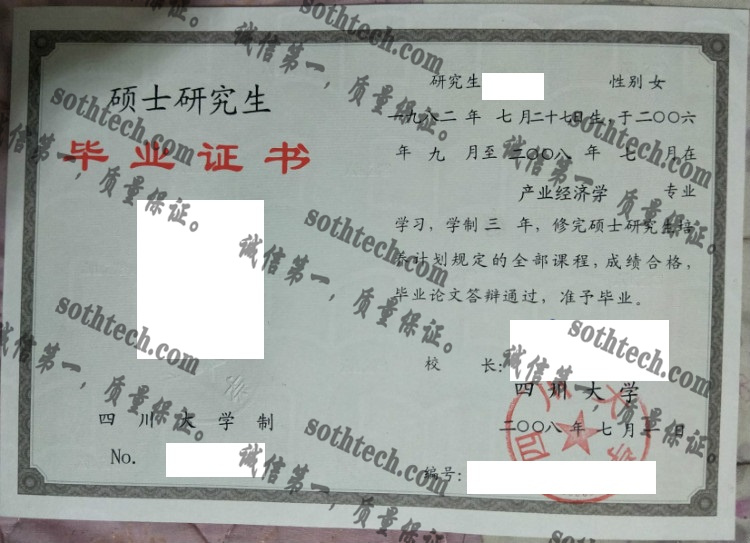 硕士研究生
毕业证书
四川大学制
No.
研究生 性别 女
一九八二年 七月二十七日生,于二〇〇六
年 九 月至 二〇〇八 年 七 月在
产业经济学 专业
学习,学制 三 年,修完硕士研究生培
养计划规定的全部课程,成绩合格,
毕业论文答辩通过,准予毕业。
校 长:
四川大学
二〇〇八 年 七 月 一 日
编号:
sothtech.com
诚信第一,质量保证。
sothtech.com
诚信第一,质量保证。
sothtech.com
诚信第一,质量保证。
sothtech.com
诚信第一,质量保证。
sothtech.com
诚信第一,质量保证。
sothtech.com
诚信第一,质量保证。
sothtech.com
诚信第一,质量保证。
sothtech.com
诚信第一,质量保证。